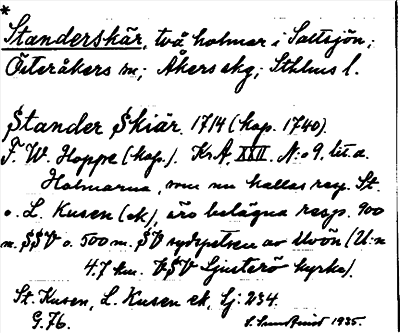 *
Standerskär, två holmar i Saltsjön;
Österåkers sn; Åkers skg; Sthlms l.
Stander Skiär 1714 (kop. 1740).
F. W. Hoppe (kop.). KrA, XXII. N:o 9, lit. a.
Holmarna, som nu kallas resp. St.
o. L. Kusen (ek), äro belägna resp. 900
m. SSV o. 500 m. SV sydspetsen av Uvön (U:n
4.7 km. VSV Ljusterö kyrka).
St. Kusen, L. Kusen ek. Lj: 234.
G. 76.
1935.